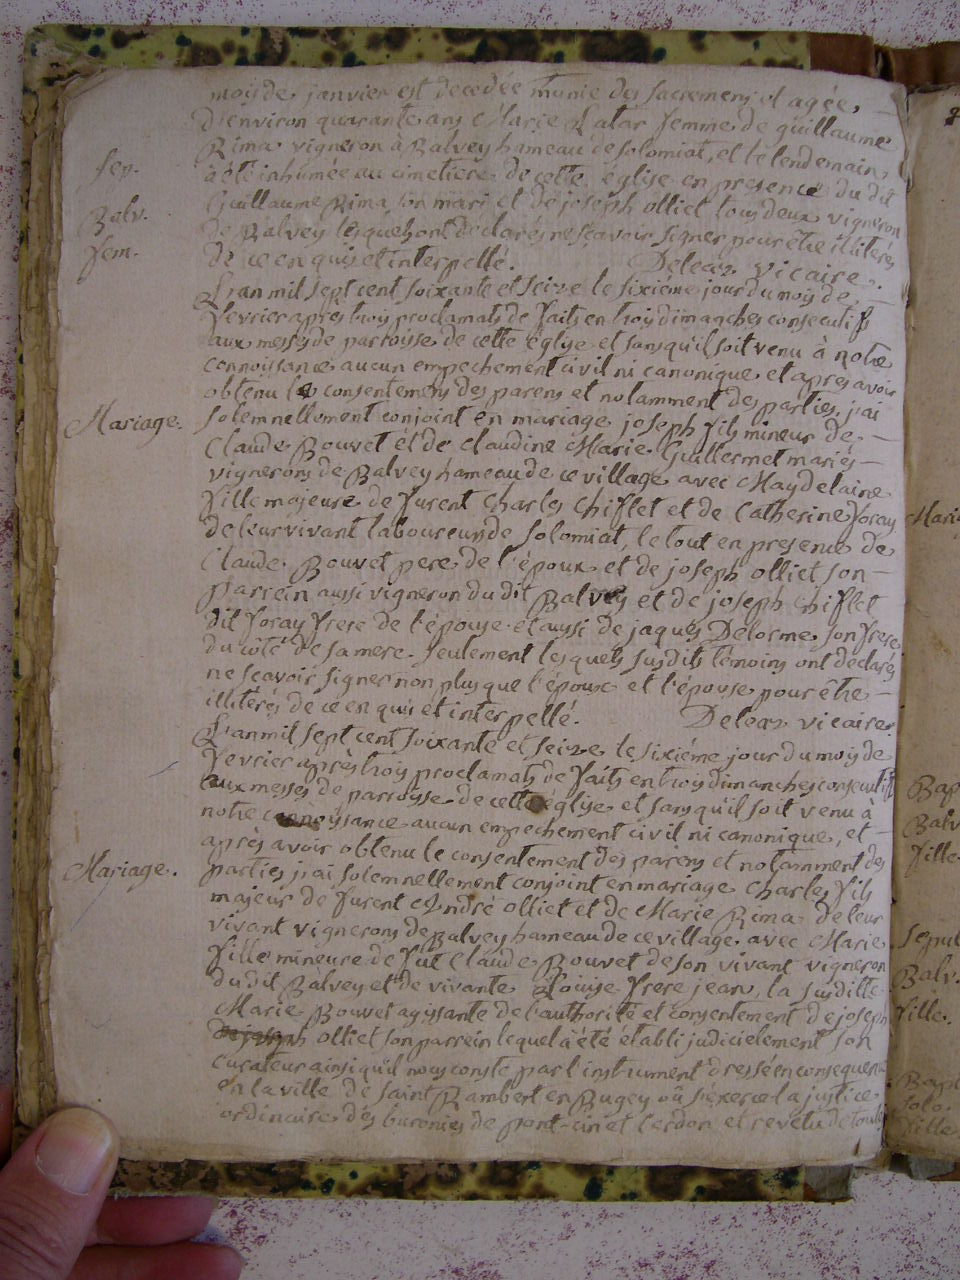 moisde janvier est decedée munie des sacremens et agée
D'environ quarante ans Marie Latar femme de guillaume
Rima vigneron à Balvey hameau de solomiat, et le lendemain
sep.
a été inhumée au cimetiere de cette église en presence du dit
Guillaume Rima son mari et de joseph olliet tous deux vigneron
Balv.
de Balvey lesquels ont déclarés ne sçavoir signer pour être illiterés
fem.
de ce enquis et interpellé. Deleaz vicaire.
L'an mil sept cent soixante et seize le sixième jour du mois de
fevrier après trois proclamats de faits en trois dimaches consecutifs
aux messes de parroisse de cette église et sans qu'il soit venu à notre
connoissance aucun empechement civil ni canonique et apres avoir
obtenu le consentemens des parens et notamment des parties, j'ai
Mariage.
solemnellement conjoint en mariage joseph fils mineur de
Claude Bouvet et de claudine Marie Guillermet mariés
vignerons de Balvey hameau de ce village avec Magdelaine
fille majeure de furent Charles Chiflet et de Catherine foray
de leur vivant laboureurs de solomiat, le tout en presence de
Claude Bouvet pere de l'époux et de joseph olliet son
parrein aussi vigneron du dit Balvey et de joseph Chiflet
dit foray frere de l'épouse et aussi de jaques Delorme son frere
du côté de sa mere seulement lesquels susdits témoins ont declarés
ne sçavoir signer non plus que l'époux et l'épouse pour être
illitérés de ce enquis et interpellé. Deleaz vicaire.
L'an mil sept cent soixante et seize le sixiéme jour du mois de
fevrier après trois proclamats de faits en trois dimanches consecutifs
aux messes de parroisse de cette église et sans qu'il soit venu à
notre connoissance aucun empechement civil ni canonique, et
après avoir obtenu le consentement des parens et notamment des
Mariage.
parties j'ai solemnellement conjoint en mariage Charles fils
majeur de furent André olliet et de Marie Rima de leur
vivant vignerons de Balvey hameau de ce village avec Marie
fille mineure de fut Claude Bouvet de son vivant vigneron
du dit Balvey et de vivante Louise frere jean, la susditte
Marie Bouvet agissante de l'authorité et consentement de joseph
olliet son parrein lequel à été établi judicielement son
curateur ainsi qu'il nous conste par l'instrument dressé en consequence
en la ville de saint Rambert en Bugey où s'exerce la justice
ordinaire des baronies de pont-cin et cerdon et revetu de toute
Mari
Bap
Balv
fille.
sepul
Balv.
fille.
Bap
solo.
fille